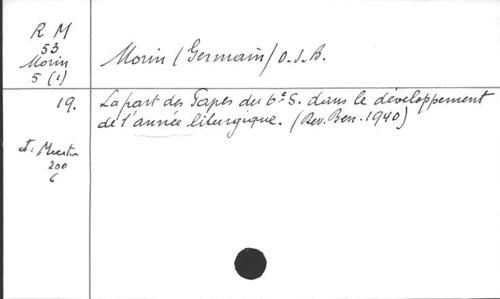 R M
53
Morin
5 (1)
Morin (Germain) O.S.B.
19.
La part des Papes du 6e S. dans le développement
de l'année liturgique. (Rev. Ben. 1940)
200
6